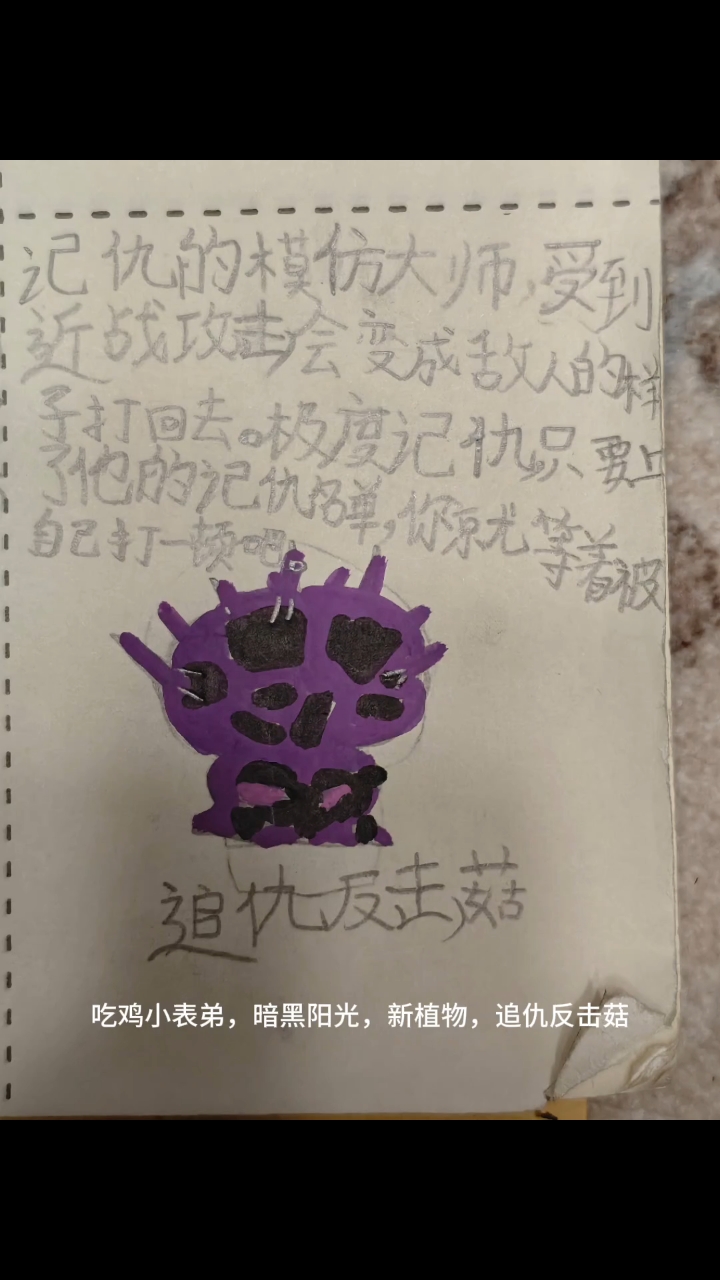 记仇的模仿大师,受到
近战攻击,会变成敌人的样
子打回去。极度记仇,只要上
了他的记仇名单,你就等着被
自己打一顿吧
追仇反击菇
吃鸡小表弟，暗黑阳光，新植物，追仇反击菇